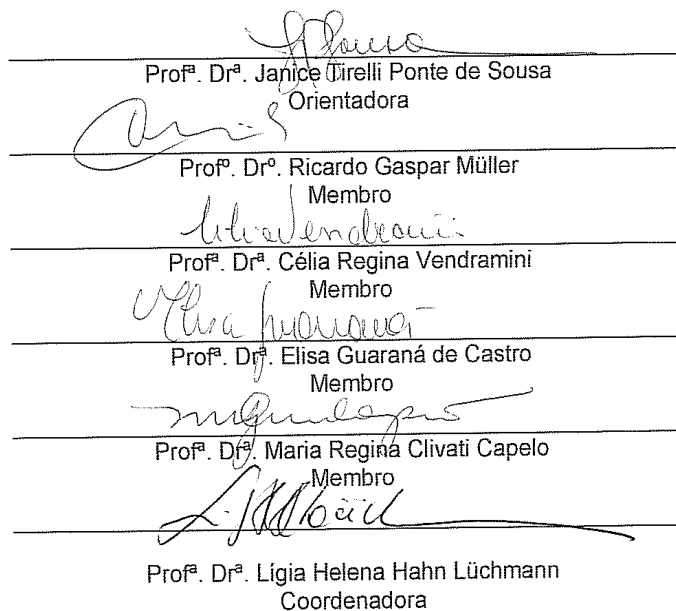 Profª. Drª. Janice Tirelli Ponte de Sousa
Orientadora
Profº. Drº. Ricardo Gaspar Müller
Membro
Profª. Drª. Célia Regina Vendramini
Membro
Profª. Drª. Elisa Guaraná de Castro
Membro
Profª. Drª. Maria Regina Clivati Capelo
Membro
Profª. Drª. Lígia Helena Hahn Lüchmann
Coordenadora